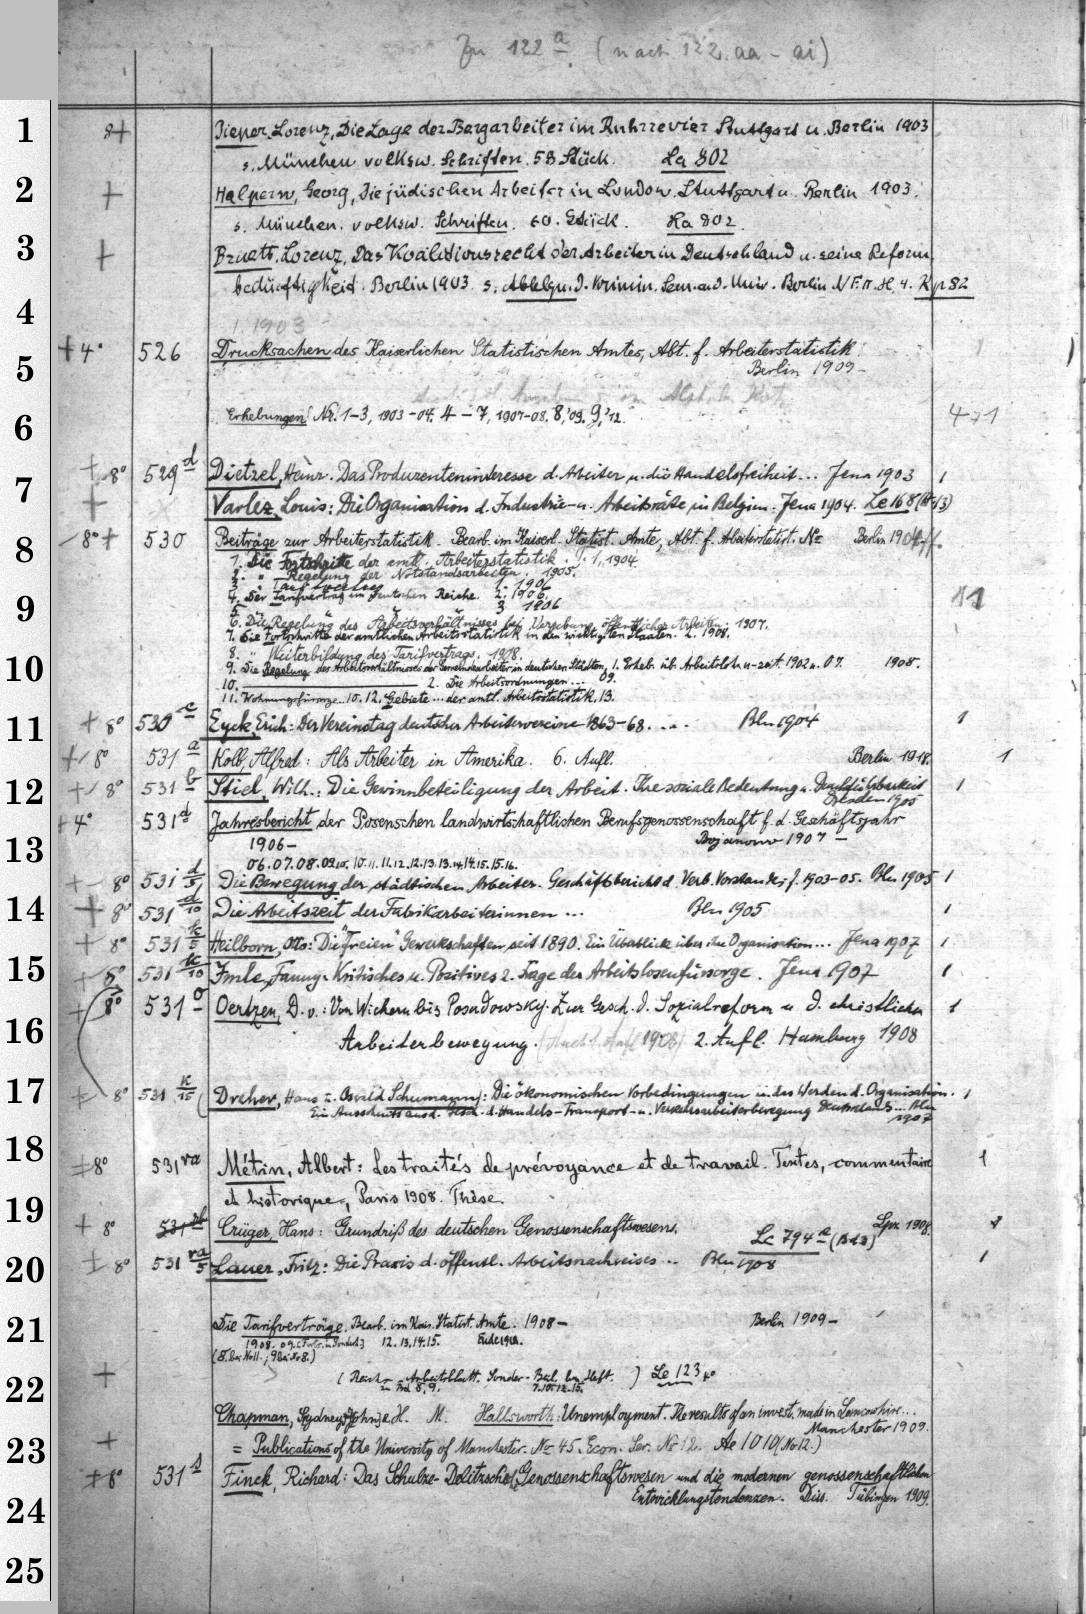 Zu 122 a. (nach 122. aa - ai)
1
8+ Pieper, Lorenz, Die Lage der Bergarbeiter im Ruhrrevier Stuttgart u. Berlin 1903
s. München volksw. Schriften. 58 Stück. La 802
2
+ Halpern, Georg, Die jüdischen Arbeiter in London. Stuttgart u. Berlin 1903.
s. München. volksw. Schriften. 60. Stück. La 802.
3
+ Lorenz, Das Koalitionsrecht der Arbeiter in Deutschland u. seine Reform
bedürftigkeit. Berlin 1903. s. Abhlgn. d. krimin. Sem. a. d. Univ. Berlin N F. II. H. 4. 82
4
1. 1903
+ 4° 526 Drucksachen des Kaiserlichen Statistischen Amtes, Abt. f. Arbeiterstatistik.
5
Berlin 1909 -
6
Erhebungen: Nr. 1-3, 1903-04. 4-7, 1907-08. 8, '09. 9, '12. 4+1
+ 8° 529 d Dietzel, Heinr. Das Produzenteninteresse d. Arbeiter u. die Handelsfreiheit... Jena 1903 1
7
+ Varlez, Louis: Die Organisation d. Industrie- u. Arbeitsräte in Belgien. Jena 1904. Le 168
8
- 8° + 530 Beiträge zur Arbeiterstatistik. Bearb. im Kaiserl. Statist. Amte, Abt. f. Arbeiterstatist. No Berlin 1904ff.
1. Die Fortschritte der amtl. Arbeiterstatistik. T. 1, 1904.
2. " Regelung der Notstandsarbeiten. 1905.
3. " 1. 1906
4. Der Tarifvertrag im Deutschen Reiche. 2. 1906.
9
5. " " " " 3 1906 11
6. Die Regelung des Arbeitsverhältnisses bei Vergebung öffentlicher Arbeiten. 1907.
7. Die Fortschritte der amtlichen Arbeiterstatistik in den wichtigsten Staaten. 2. 1908.
8. " Weiterbildung des Tarifvertrags. 1908.
10
9. Die Regelung des Arbeitsverhältnisses der Gemeindearbeiter in deutschen Städten, 1. Erheb. üb. Arbeitslohn u. -zeit. 1902 u. 07. 1908.
10. 2. Die Arbeitsordnungen... 09.
11. Wohnungsfürsorge. 10. 12. Gebiete... der amtl. Arbeitsstatistik. 13.
11
+ 8° 530 c Eyck, Erich: Der Vereinstag deutscher Arbeitervereine 1863-68. ... Bln 1904 1
+/ 8° 531 a Kolb, Alfred: Als Arbeiter in Amerika. 6. Aufl. Berlin 1918. 1
12
+/ 8° 531 b Stiel, Wilh.: Die Gewinnbeteiligung der Arbeit. Ihre soziale Bedeutung u. Durchführbarkeit 1
Dresden 1905
+ 4° 531 d Jahresbericht der Posenschen landwirtschaftlichen Berufsgenossenschaft f. d. Geschäftsjahr
13
1906- Bojanowo 1907 -
06. 07. 08. 09. 10. 10. 11. 11. 12. 12. 13. 13. 14. 14. 15. 15. 16.
+ - 8° 531 d/5 Die Bewegung der städtischen Arbeiter. Geschäftsbericht d. Verb. Vorstandes f. 1903-05. Bln 1905 1
14
+ 8° 531 d/10 Die Arbeitszeit der Fabrikarbeiterinnen ... Bln 1905 1
+ 8° 531 k/5 Heilborn, Otto: Die "freien" Gewerkschaften seit 1890. Ein Überblick über ihre Organisation... Jena 1907 1
15
+ 8° 531 k/10 Imle, Fanny. Kritisches u. Positives z. Frage der Arbeitslosenfürsorge. Jena 1907 1
+ 8° 531 o Oertzen, D. v.: Von Wichern bis Posadowsky. Zur Gesch. d. Sozialreform u. d. christlichen 1
16
Arbeiterbewegung. 2. Aufl. Hamburg 1908
17
+ 8° 531 k/15 Dreher, Hans u. Oswald Schumann: Die ökonomischen Vorbedingungen u. das Werden d. Organisation. 1
Ein Ausschnitt aus d. Gesch. d. Handels- Transport- u. Verkehrsarbeiterbewegung Deutschlands... Bln
1907
18
+ 8° 531 ra Métin, Albert: Les traités de prévoyance et de travail. Textes, commentaire 1
et historique, Paris 1908. Thèse.
19
+ 8° 531 rb Crüger, Hans: Grundriß des deutschen Genossenschaftswesens. Lpz 1908.
Lc 794
20
+ 8° 531 ra/5 Lauer, Fritz: Die Praxis d. öffentl. Arbeitsnachweises... Bln 1908 1
21
Die Tarifverträge. Bearb. im Kais. Statist. Amte. 1908 - Berlin 1909 -
1908. 09. 12. 13. 14. 15.
(8. bei No 11.; 9 bei No 8.)
22
+ (Reichs-Arbeitsblatt. Sonder-Beil. Heft. ) Le 123
8, 9. 7. 10. 12. 15.
Chapman, Sydney John e H. M. Hallsworth: Unemployment. The results of an invest. made in Lancashire...
Manchester 1909.
23
+ = Publications of the University of Manchester. No 45. Econ. Ser. No 12. Ae 1010 (No 12.)
+ 8° 531 s Finck, Richard: Das Schulze-Delitzsche Genossenschaftswesen und die modernen genossenschaftlichen
24
Entwicklungstendenzen. Diss. Tübingen 1909.
25